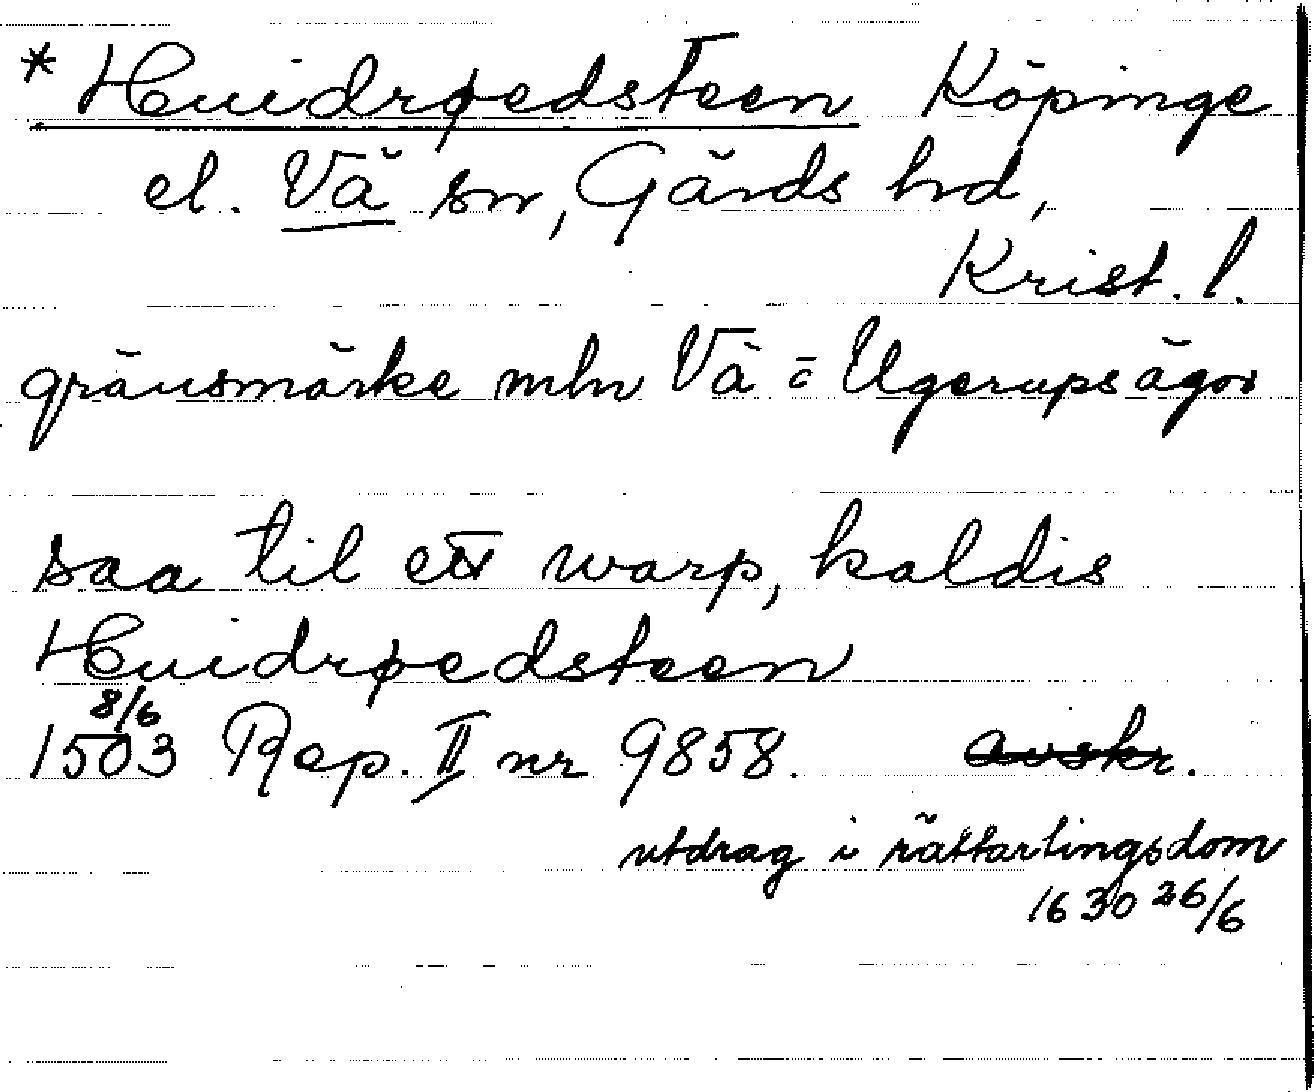 * Huidrøedsteen Köpinge
el. Vä sn, Gärds hd,
Krist. l.
gränsmärke mln Vä = Ugerups ägor
saa til ett warp, kaldis
Huidrøedsteen
1503 8/6 Rep. II nr 9858. avskr.
utdrag i rättartingsdom
1630 26/6